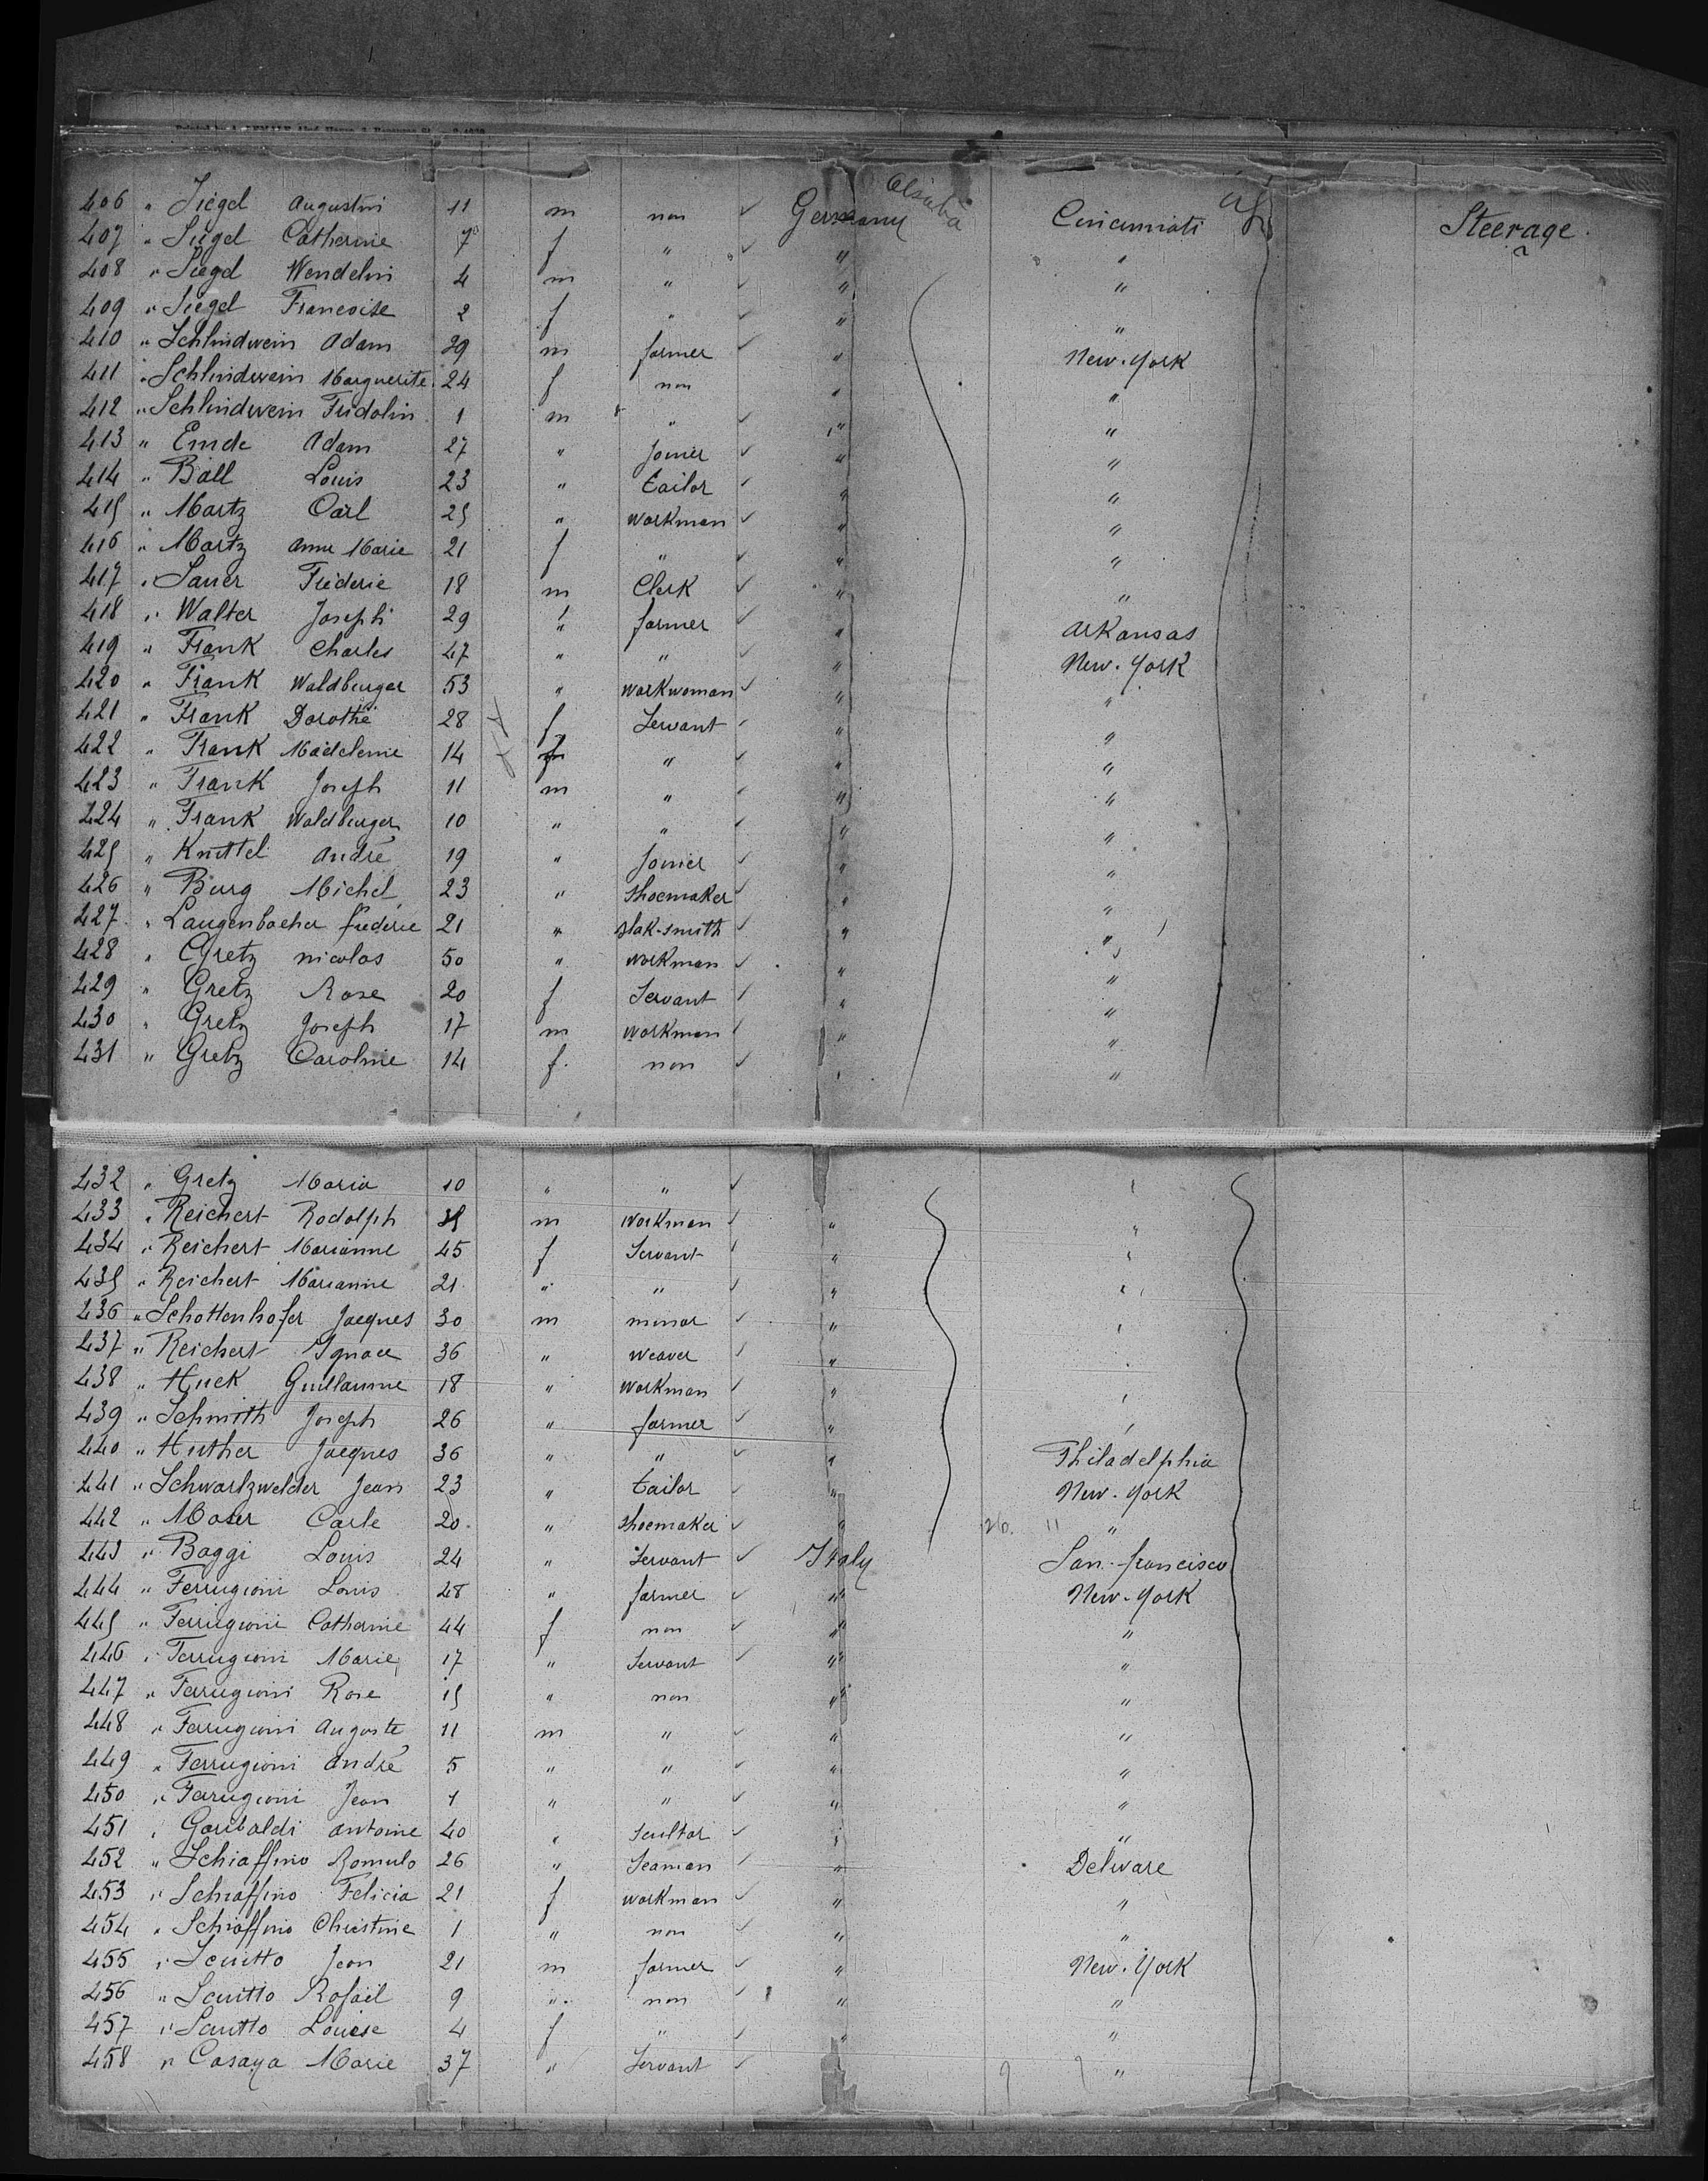 406 " Siegel Augustin 11 m non ✓ Germany Cincinnati Steerage
407 " Siegel Catherine 7 f " ✓ " "
408 " Siegel Wendelin 4 m " ✓ " "
409 " Siegel Francoise 2 f " ✓ " "
410 " Schlindwein Adam 29 m farmer ✓ " New-York
411 " Schlindwein Marguerite 24 f non " "
412 " Schlindwein Fridolin 1 m " ✓ " "
413 " Emde Adam 27 " Joiner ✓ " "
414 " Ball Louis 23 " tailor ✓ " "
415 " Martz Carl 25 " workman ✓ " "
416 " Martz Anne Marie 21 f " ✓ " "
417 " Sauer Fréderic 18 m Clerk ✓ " "
418 " Walter Joseph 29 " farmer ✓ " Arkansas
419 " Frank Charles 47 " " ✓ " New-York
420 " Frank Waldburger 53 " workwoman ✓ " "
421 " Frank Dorothé 28 f Servant ✓ " "
422 " Frank Madeleine 14 f " ✓ " "
423 " Frank Joseph 11 m " ✓ " "
424 " Frank Waldburger 10 " " ✓ " "
425 " Knittel André 19 " Joiner ✓ " "
426 " Burg Michel 23 " shoemaker ✓ " "
427 " Langenbacher fréderic 21 " slak-smith ✓ " "
428 " Gretz nicolas 50 " workman ✓ " "
429 " Gretz Rose 20 f Servant ✓ " "
430 " Gretz Joseph 17 m workman ✓ " "
431 " Gretz Caroline 14 f. non ✓ " "
432 " Gretz Maria 10 " " ✓ "
433 " Reichert Rodolph m workman ✓ " "
434 " Reichert Marianne 45 f Servant ✓ " "
435 " Reichert Marianne 21 " " ✓ " "
436 " Schottenhofer Jacques 30 m minor ✓ " "
437 " Reichert Ignace 36 " weaver ✓ " "
438 " Huck Guillaume 18 " workman ✓ " "
439 " Schmith Joseph 26 " farmer ✓ " "
440 " Huther Jacques 36 " " ✓ " Philadelphia
441 " Schwartzwelder Jean 23 " tailor ✓ " New-York
442 " Moser Carle 20 " shoemaker ✓ " "
443 " Baggi Louis 24 " Servant ✓ Italy San-francisco
444 " Ferrugioni Louis 48 " farmer ✓ " New-York
445 " Ferrugioni Catherine 44 f non ✓ " "
446 " Ferrugioni Marie 17 " Servant ✓ " "
447 " Ferrugioni Rose 15 " non " "
448 " Ferrugioni Auguste 11 m " ✓ " "
449 " Ferrugioni André 5 " " ✓ " "
450 " Ferrugioni Jean 1 " " ✓ " "
451 " Garibaldi Antoine 40 " Scultor ✓ " "
452 " Schiaffino Romulo 26 " Seaman ✓ " Delware
453 " Schiaffino Felicia 21 f workman ✓ " "
454 " Schiaffino Christine 1 " non ✓ " "
455 " Scuitto Jean 21 m farmer ✓ " New-York
456 " Scuitto Rofaël 9 " non ✓ " "
457 " Scuitto Louise 4 f " ✓ " "
458 " Casaya Marie 37 " Servant ✓ "